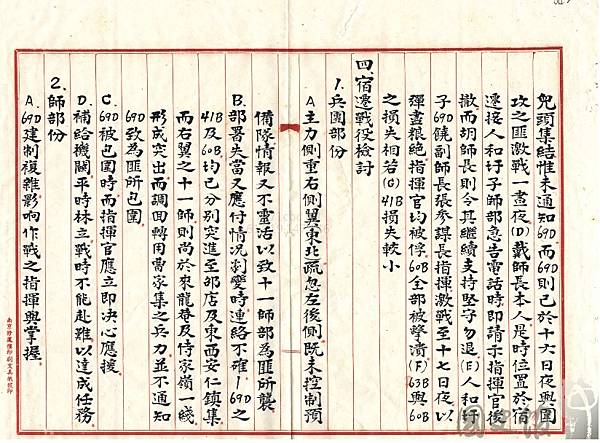 兜頭集結惟未通知69D而69D則已於十六日夜與圍
攻之匪激戰一晝夜(D)戴師長本人是時位置於宿
遷接人和圩子師部急告電話時即請示指揮官後
撤而胡師長則令其繼續支持堅守勿退(E)人和圩
子69D饒副師長張參謀長指揮激戰至十七日夜以
彈盡糧絕指揮官均被俘60B全部被擊潰(F)63B與60B
之損失相若(G)41B損失較小
四、宿遷戰役檢討
1.兵團部份
A 主力側重右側翼東北疏忽左後側既未控制預
備隊情報又不靈活以致十一師部為匪所襲
B.部署失當又應付情況劇變時連絡不確1.69D之
41B及60B均已分別突進至邵店及東西安仁鎮集
而右翼之十一師則尚於來龍菴及侍家嶺一綫
形成突出而調回轉用曹家集之兵力並不通知
69D致為匪所包圍
C.69D被包圍時而指揮官應立即決心應援
D.補給機關平時林立戰時不能赴難以達成任務
2.師部份
A.69D建制複雜影响作戰之指揮與掌握